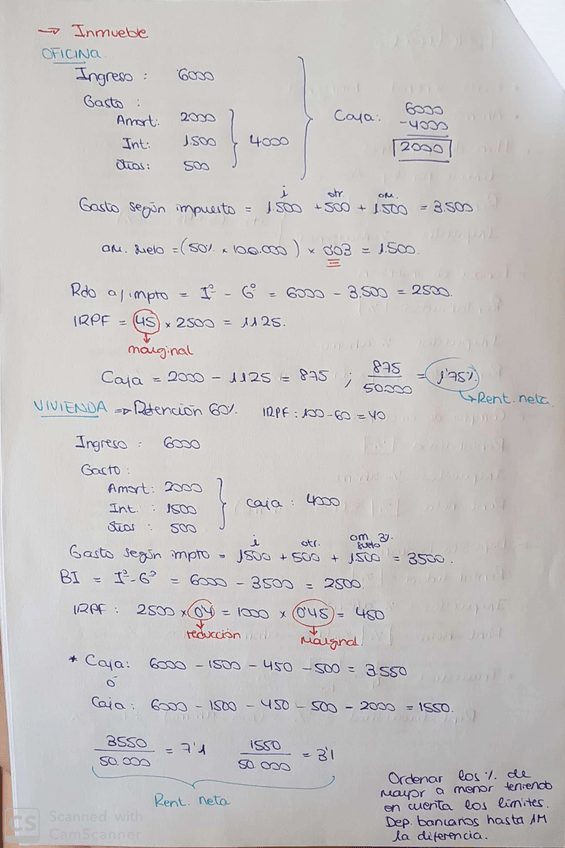 → Inmueble
OFICINA
Ingreso : 6000
Gasto :
Amort: 2000
Int: 1500
Otros: 500
4000
Caja: 6000
-4000
2000
i otr am.
Gasto según impuesto = 1500 + 500 + 1500 = 3.500
am. suelo = (50% × 100.000) × 0'03 = 1.500
Rdo a/ impto = Iº - Gº = 6000 - 3.500 = 2500.
IRPF = 45 × 2500 = 1125.
marginal
Caja = 2000 - 1125 = 875 ; 875 / 50.000 = 1'75%
Rent. neta
VIVIENDA ⇒ Retención 60%. IRPF: 100 - 60 = 40
Ingreso : 6000
Gasto:
Amort: 2000
Int : 1500
Otros : 500
caja : 4000
i otr. am suelo 3%
Gasto según impto = 1500 + 500 + 1500 = 3500.
BI = Iº - Gº = 6000 - 3500 = 2500
IRPF : 2500 × 0'4 = 1000 × 0'45 = 450
reducción marginal
* Caja: 6000 - 1500 - 450 - 500 = 3.550
ó
Caja: 6000 - 1500 - 450 - 500 - 2000 = 1550.
3550 / 50.000 = 7'1 1550 / 50.000 = 3'1
Rent. neta
Ordenar los % de
mayor a menor teniendo
en cuenta los límites.
Dep. bancarios hasta 1M
la diferencia.
CS Scanned with
CamScanner